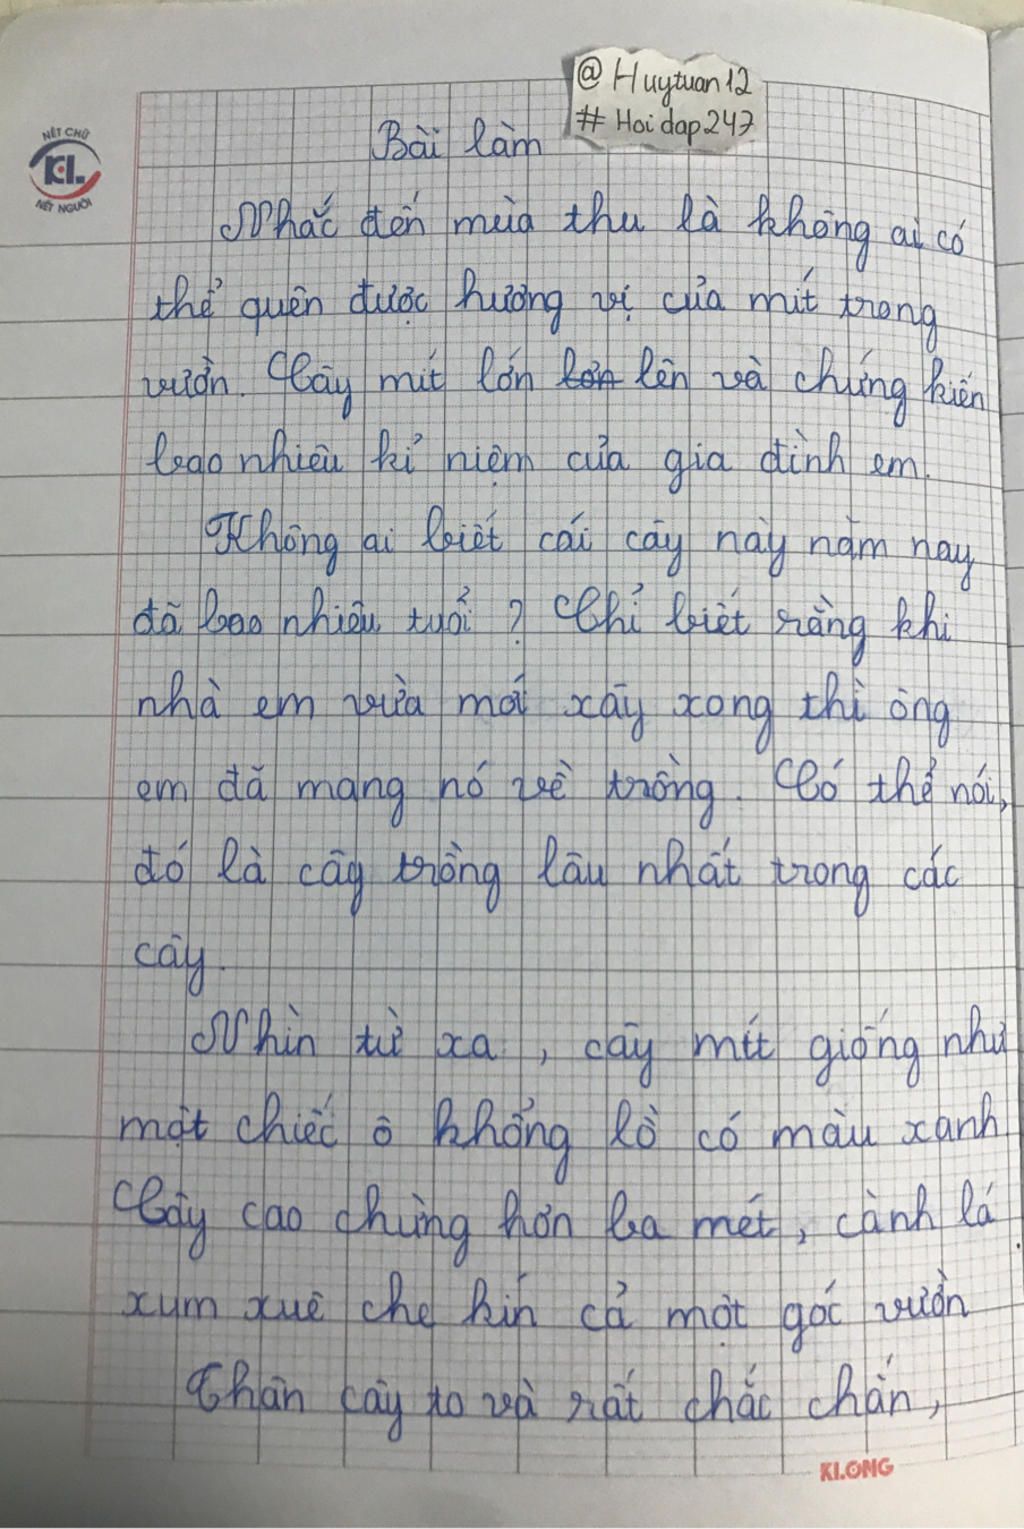 @ Huytuan12
# Hoidap247
NÉT CHỮ
KL.
NẾT NGƯỜI
Bài làm
Nhắc đến mùa thu là không ai có
thể quên được hương vị của mít trong
vườn. Cây mít lớn lớn lên và chứng kiến
bao nhiêu kỉ niệm của gia đình em.
Không ai biết cái cây này năm nay
đã bao nhiêu tuổi ? Chỉ biết rằng khi
nhà em vừa mới xây xong thì ông
em đã mang nó về trồng. Có thể nói,
đó là cây trồng lâu nhất trong các
cây.
Nhìn từ xa, cây mít giống như
một chiếc ô khổng lồ có màu xanh
Cây cao chừng hơn ba mét, cành lá
xum xuê che kín cả một góc vườn
Thân cây to và rất chắc chắn,
KLONG